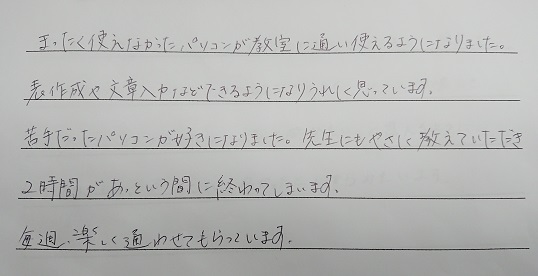 まったく使えなかったパソコンが教室に通い使えるようになりました。
表作成や文章入力などできるようになりうれしく思っています。
苦手だったパソコンが好きになりました。先生にもやさしく教えていただき
2時間があっという間に終わってしまいます。
毎週、楽しく通わせてもらっています。